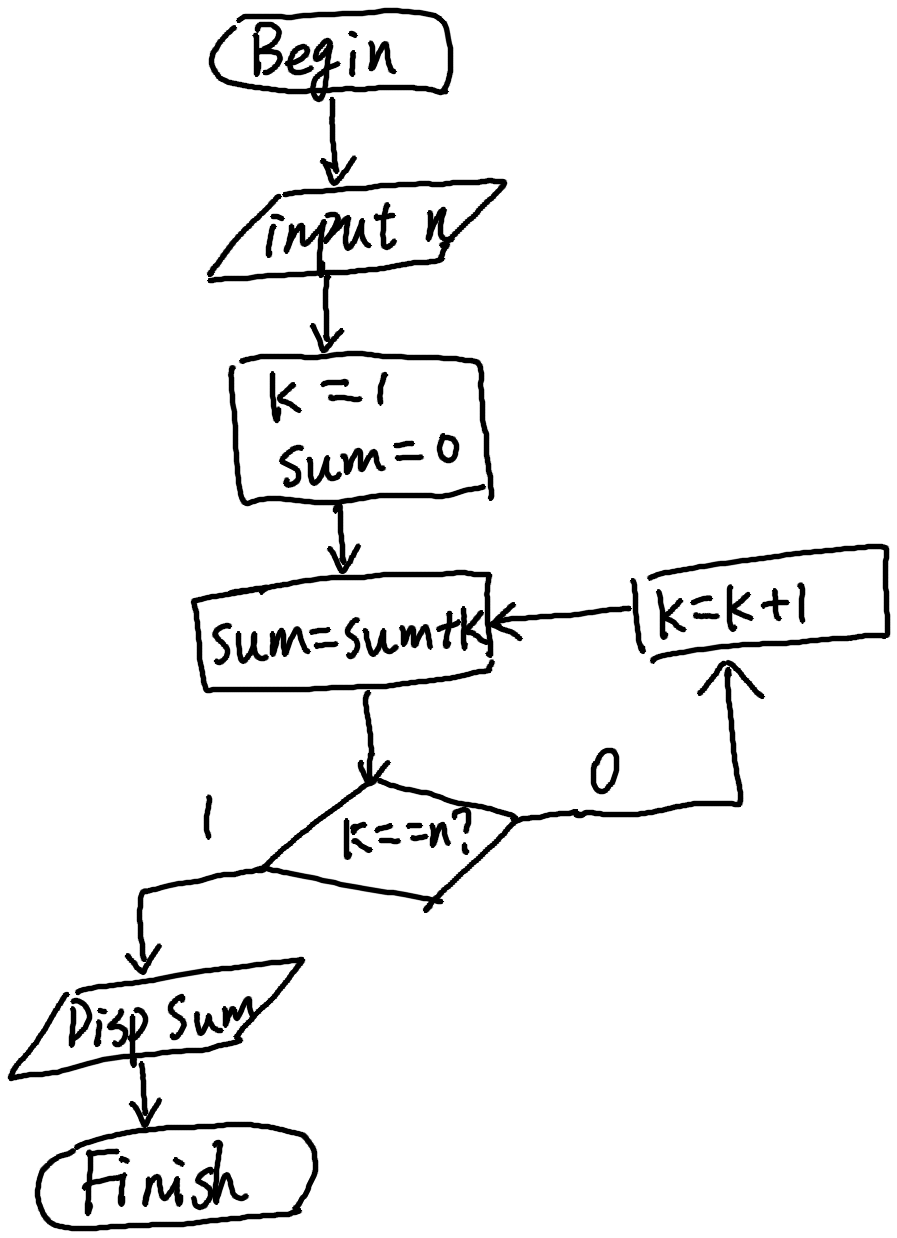 Begin
input n
k=1
sum=0
sum=sum+k
k=k+1
0
k==n?
1
Disp Sum
Finish